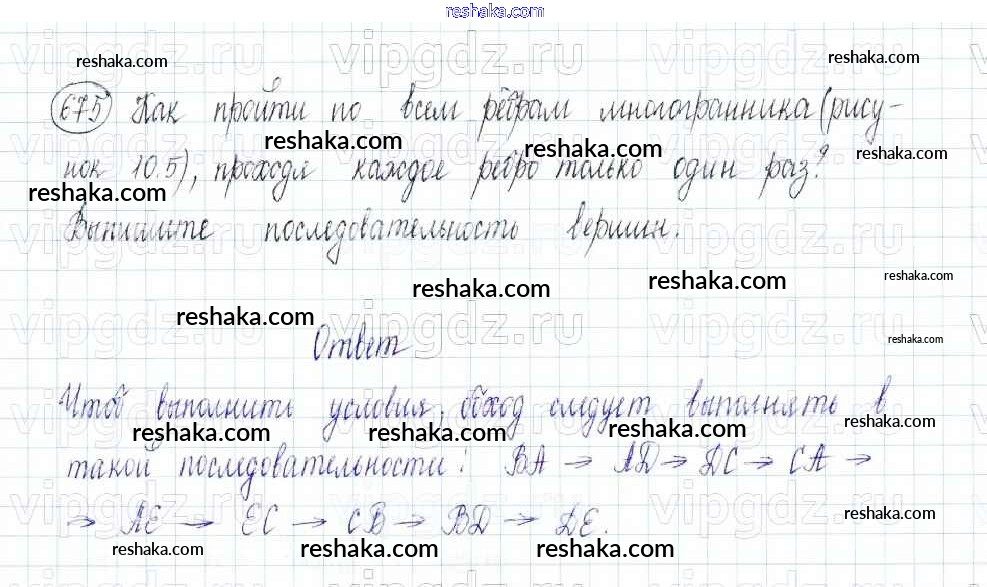 reshaka.com
vipgdz.ru vipgdz.ru vipgdz.ru
reshaka.com reshaka.com
675 Как пройти по всем рёбрам многогранника (рису-
reshaka.com reshaka.com reshaka.com
нок 10.5), проходя каждое ребро только один раз?
reshaka.com
vipgdz.ru vipgdz.ru vipgdz.ru
Выпишите последовательность вершин.
reshaka.com reshaka.com reshaka.com
reshaka.com
vipgdz.ru vipgdz.ru vipgdz.ru
reshaka.com
Ответ
Чтоб выполнить условия, обход следует выполнять в
reshaka.com reshaka.com reshaka.com reshaka.com
такой последовательности: BA → AD → DC → CA →
vipgdz.ru vipgdz.ru vipgdz.ru
→ AE → EC → CB → BD → DE.
reshaka.com
reshaka.com reshaka.com reshaka.com